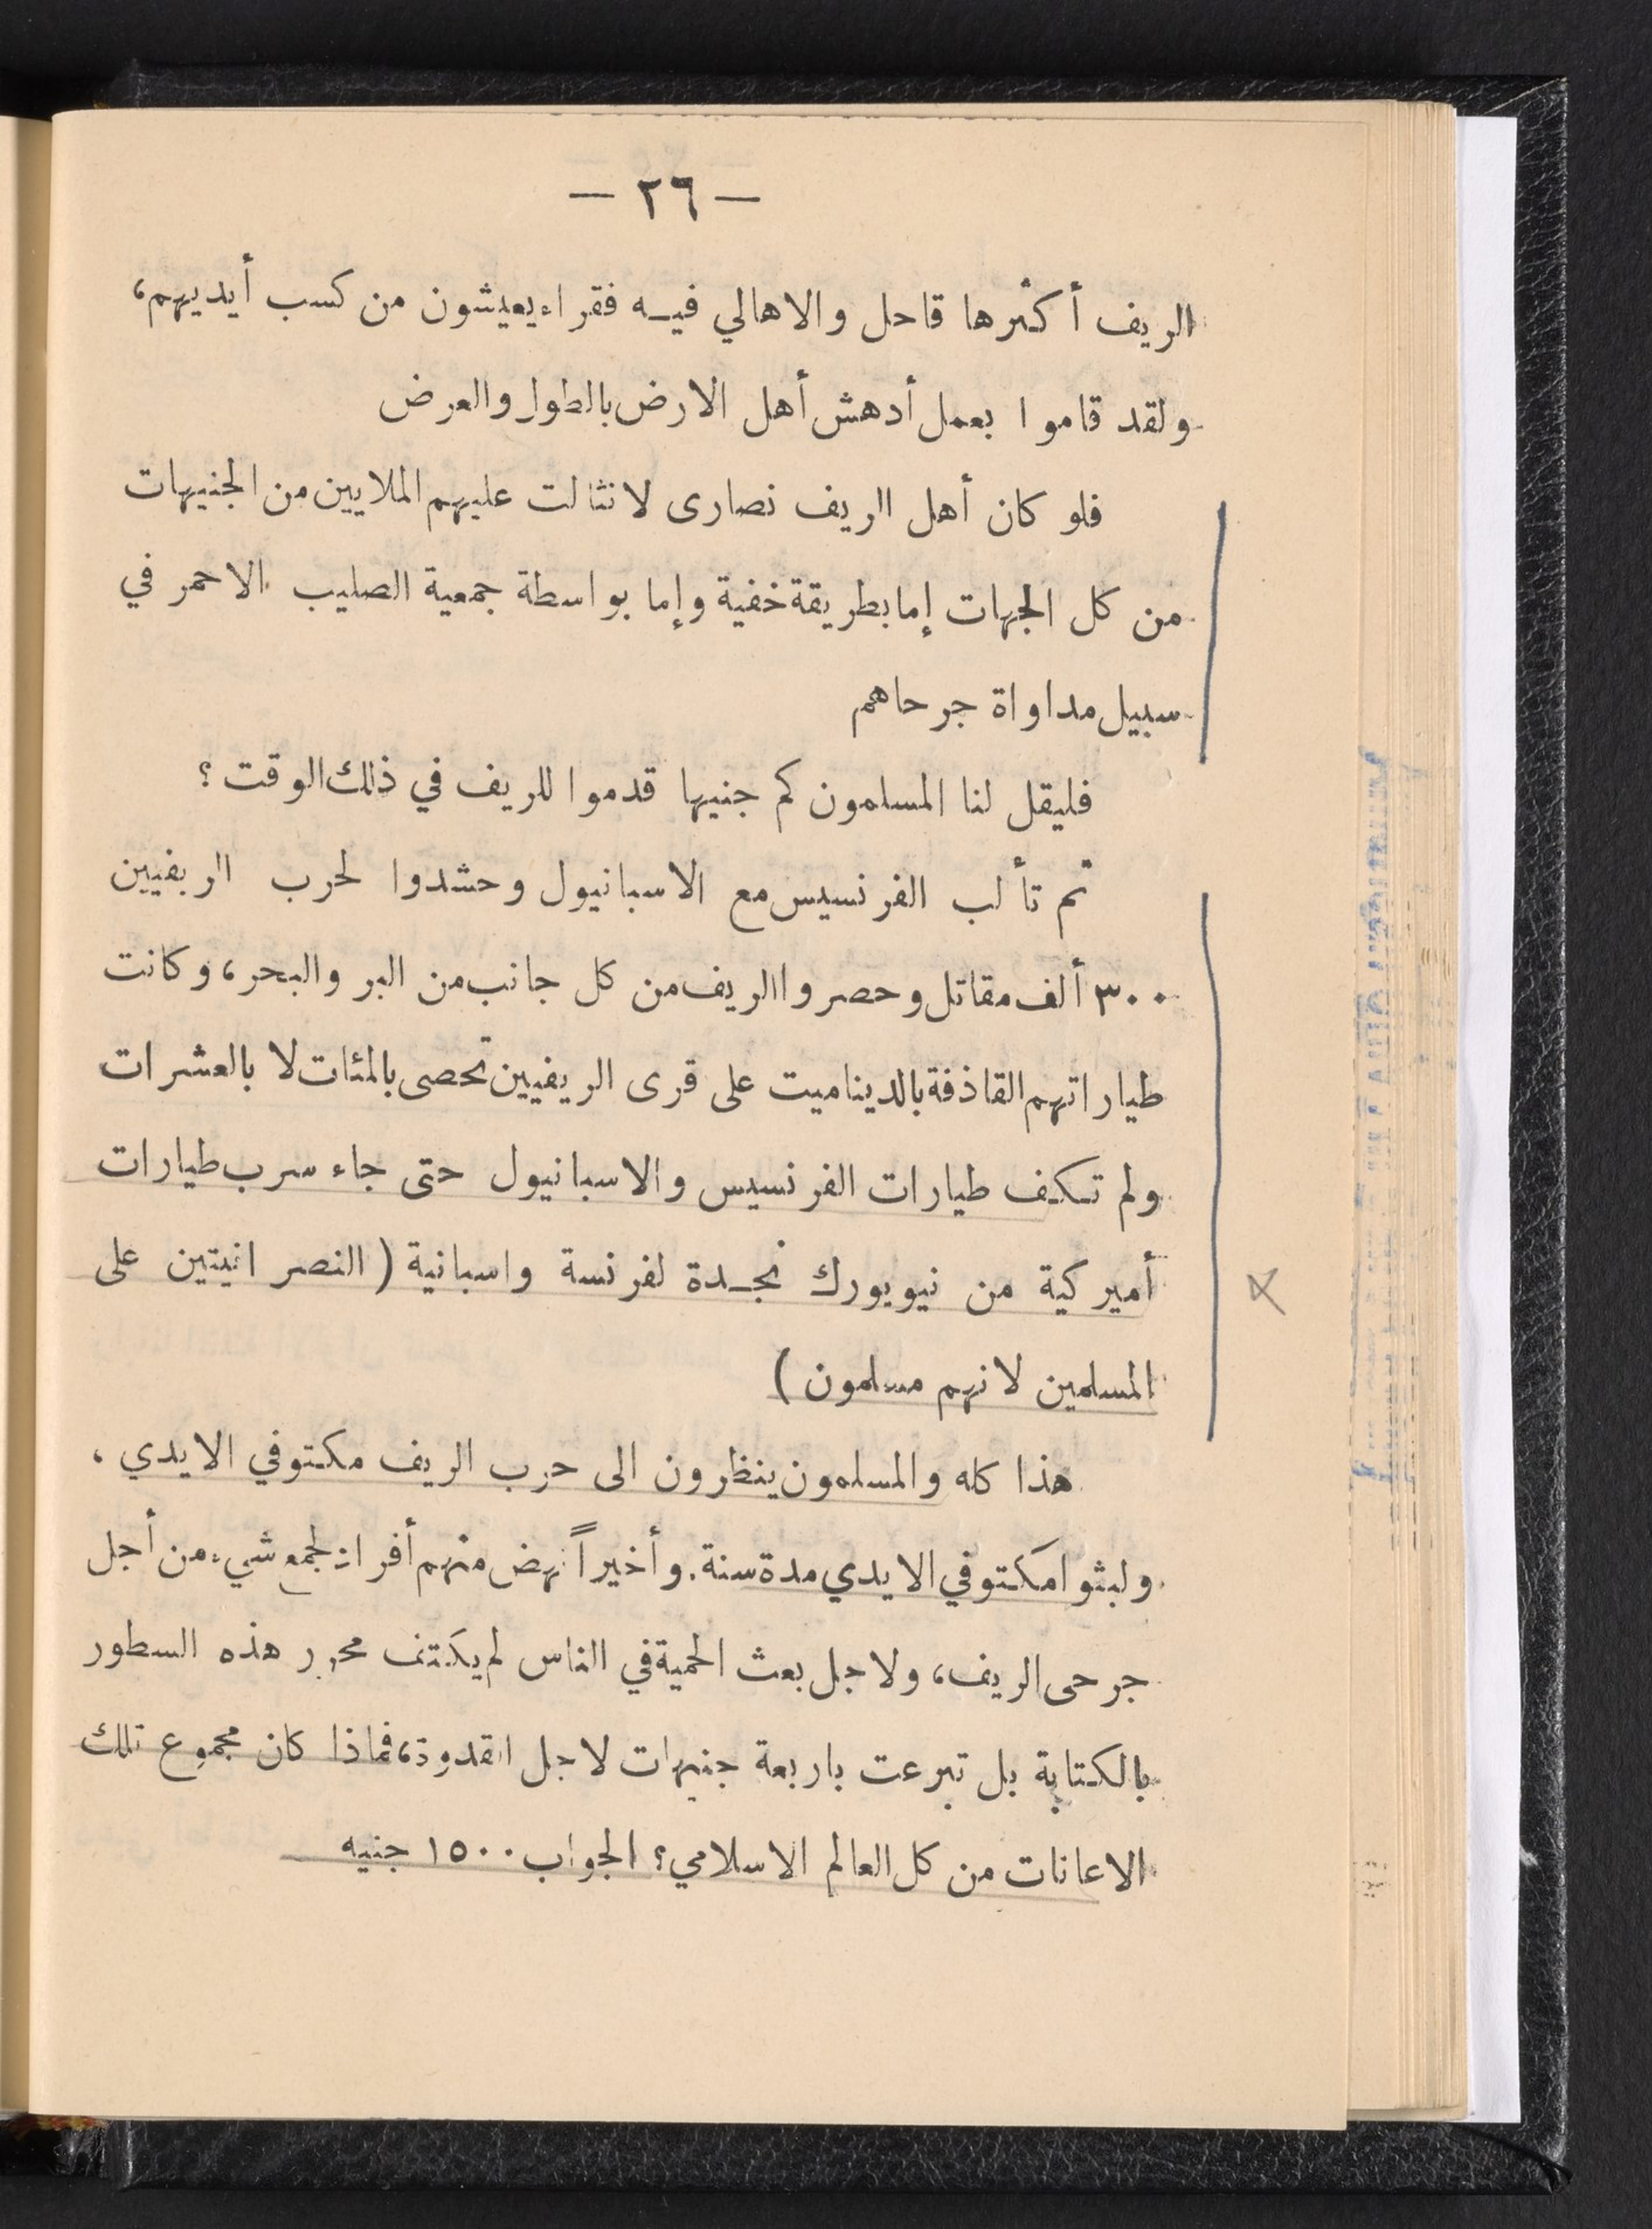 — ٢٦ —
الريف أكثرها قاحل والاهالي فيه فقراء يعيشون من كسب أيديهم،
ولقد قاموا بعمل أدهش أهل الارض بالطول والعرض
فلو كان أهل الريف نصارى لانثالت عليهم الملايين من الجنيهات
من كل الجهات إما بطريقة خفية وإما بواسطة جمعية الصليب الاحمر في
سبيل مداواة جرحاهم
فليقل لنا المسلمون كم جنيها قدموا للريف في ذلك الوقت؟
ثم تألب الفرنسيس مع الاسبانيول وحشدوا لحرب الريفيين
٣٠٠ ألف مقاتل وحصروا الريف من كل جانب من البر والبحر، وكانت
طياراتهم القاذفة بالديناميت على قرى الريفيين تحصى بالمئات لا بالعشرات
ولم تكف طيارات الفرنسيس والاسبانيول حتى جاء سرب طيارات
أميركية من نيويورك نجدة لفرنسة واسبانية (النصرانيتين على
المسلمين لانهم مسلمون)
هذا كله والمسلمون ينظرون الى حرب الريف مكتوفي الايدي،
ولبثوا مكتوفي الايدي مدة سنة. وأخيراً نهض منهم أفراد لجمع شيء من أجل
جرحى الريف، ولاجل بعث الحمية في الناس لم يكتف محرر هذه السطور
بالكتابة بل تبرعت باربعة جنيهات لاجل القدوة، فماذا كان مجموع تلك
الاعانات من كل العالم الاسلامي؟ الجواب ١٥٠٠ جنيه